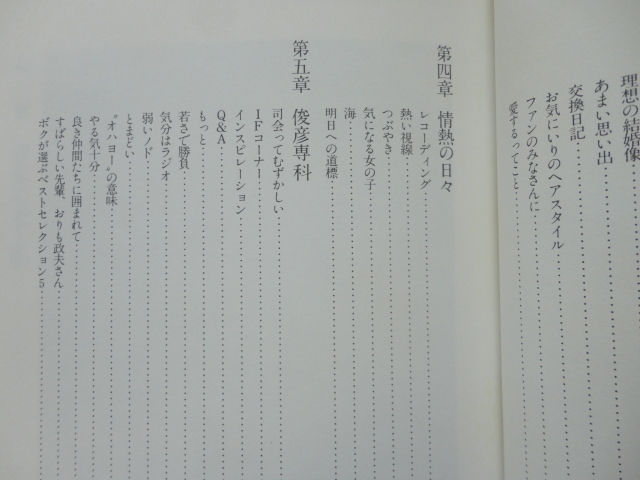 理想の結婚像
あまい思い出
交換日記
お気にいりのヘアスタイル
ファンのみなさんに
愛するってこと
第四章 情熱の日々
レコーディング
熱い視線
つぶやき
気になる女の子
海
明日への道標
第五章 俊彦専科
司会ってむずかしい
IFコーナー
インスピレーション
Q&A
もっと
若さで勝負
気分はラジオ
弱いノド
とまどい
〝オハヨー〟の意味
やる気十分
良き仲間たちに囲まれて
すばらしい先輩、おりも政夫さん
ボクが選ぶベストセレクション5